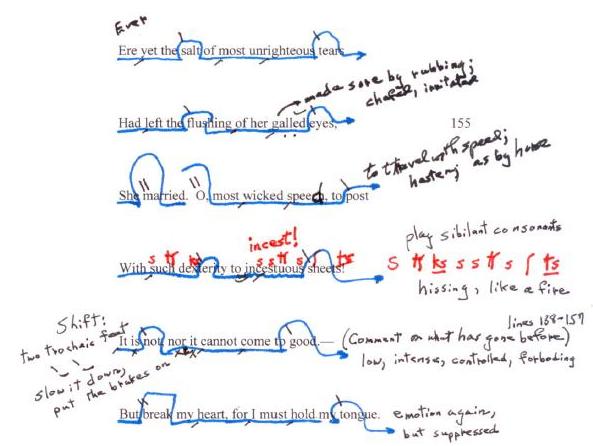 Ever
Ere yet the salt of most unrighteous tears
made sore by rubbing;
chafed, irritated
Had left the flushing of her galled eyes,
155
to travel with speed;
hasten; as by horse
She married. O, most wicked speed, to post
incest!
play sibilant consonants
With such dexterity to incestuous sheets!
hissing, like a fire
lines 158-159
Shift:
two trochaic feet
slow it down,
put the brakes on
It is not, nor it cannot come to good.—
(Comment on what has gone before)
low, intense, controlled, forboding
But break my heart, for I must hold my tongue.
emotion again,
but suppressed